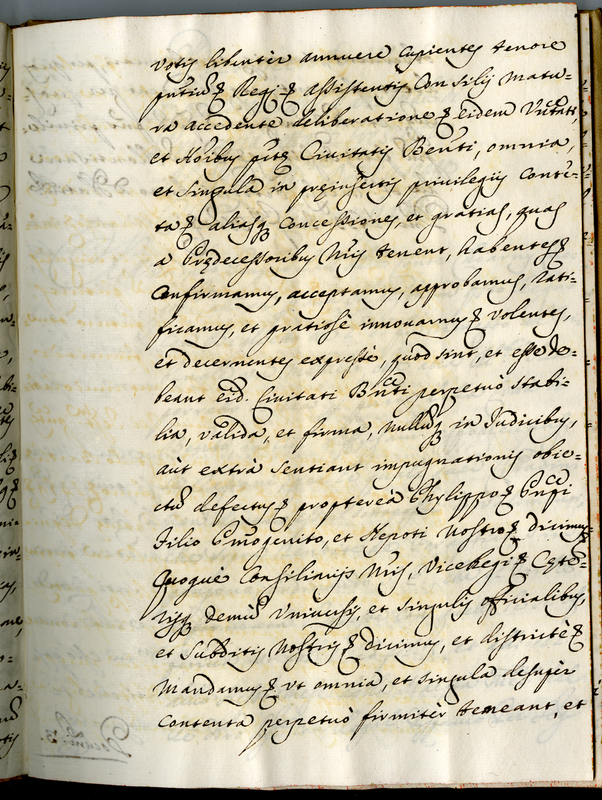 Votis libentèr annuere cupientes tenore
pn̄tiũ ȝ Regi ȝ assistentis Consilij matu-
ra accedente deliberatione ȝ eidem Vnc̃tati,
et Horībus pn̄tȝ Ciuitatis Benti, omnia,
et singula in pręinsertis priuilegijs conte-
ta ȝ aliasq̃ concessiones, et gratias, quas
a Prędecessoribus nr̃is tenent, habentq ȝ
Confirmamus, acceptamus, approbamus, rati-
ficamus, et gratiosè innouamus ȝ volentes,
et decernentes expressè, quod sint, et esse de-
beant eid. Ciuitati Bnti perpetuò stabi-
lia, valida, et firma, nullũq̃ in Iudicijs,
aùt extrà sentiant impugnationis obie-
ctũ defectus ȝ proptereà Phylippo ȝ Pn̄pi
Filio Pm̃ogenito, et Nepoti Nostro ȝ dicimus
quoquè Consiliarijs Nr̃is, ViceRegi ȝ Cęte-
risq̃ demũ Vniuersis, et singulis officialibus,
et Subditis Nostris ȝ dicimus, et districtè ȝ
Mandamus ȝ vt omnia, et singula desupèr
contenta perpetuò firmitèr teneant, et